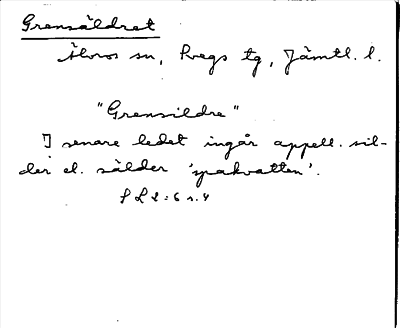 Grensäldret
Älvros sn, Svegs tg, Jämtl. l.
"Grensildre"
I senare ledet ingår appell. sil-
der el. sälder 'spakvatten'.
SL 2:6 s. 4